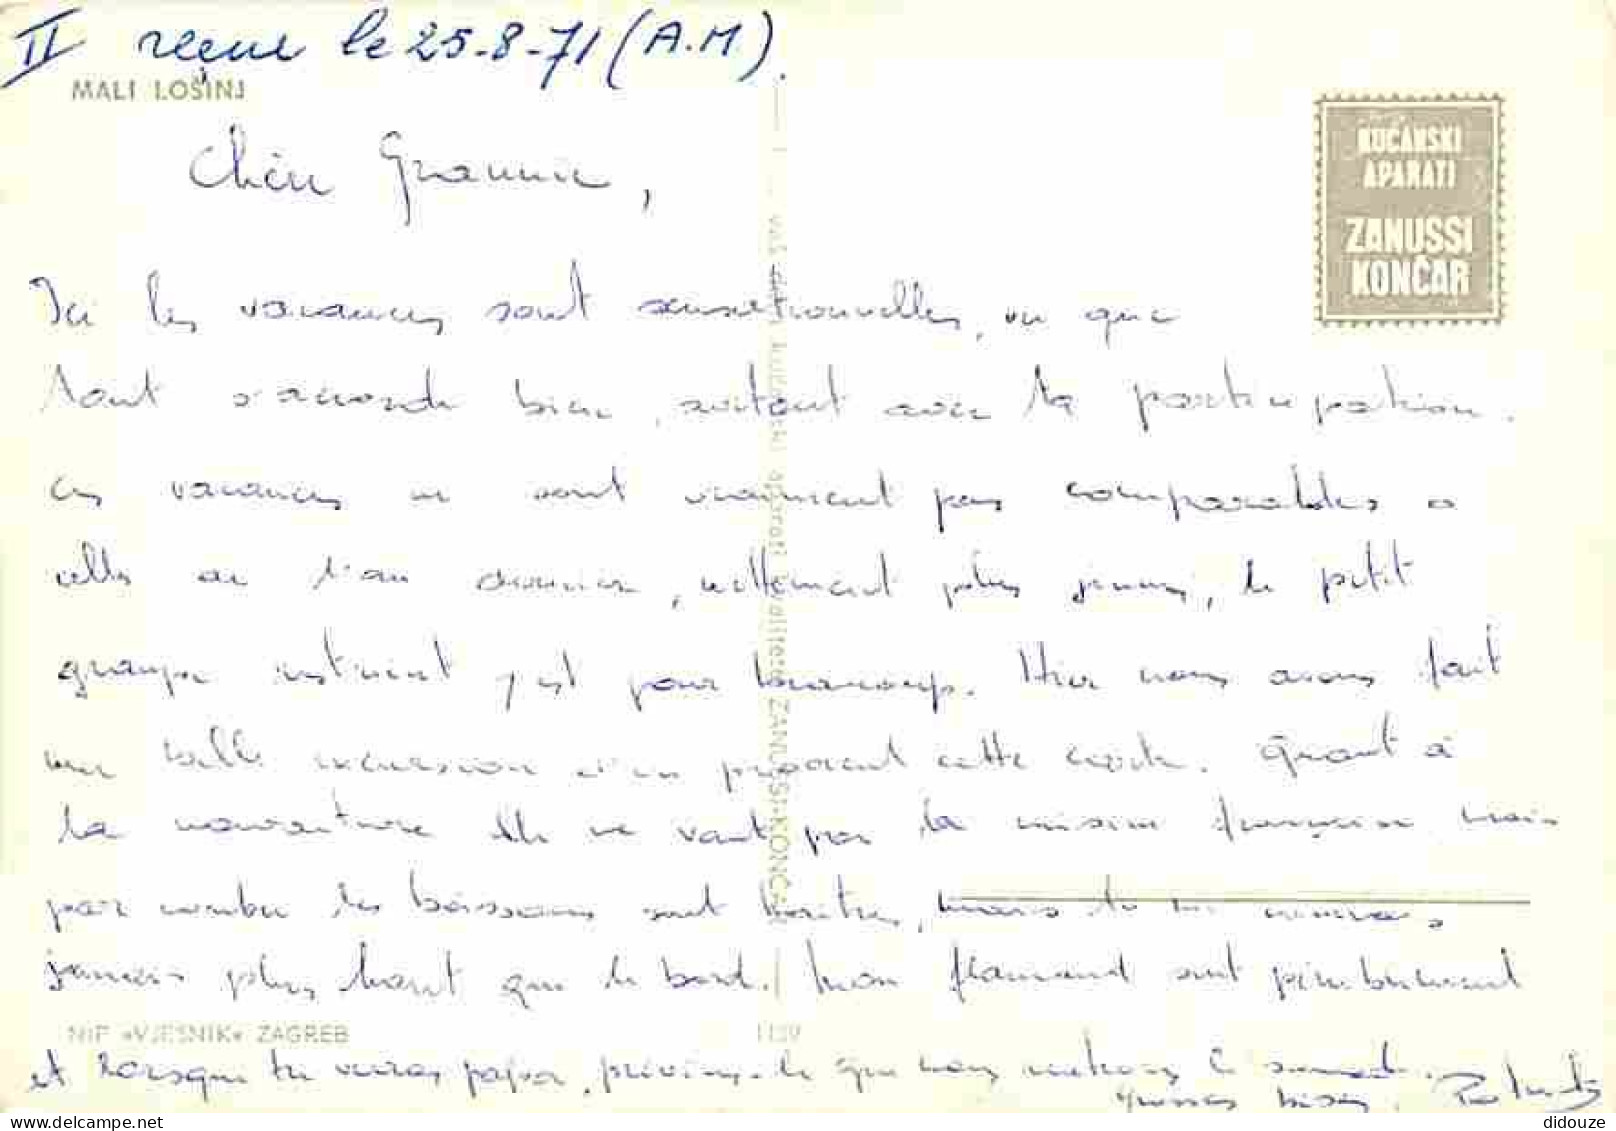 II reçue le 25-8-71 (A.M).
MALI LOŠINJ
KUĆANSKI
APARATI
ZANUSSI
KONČAR
Chère Grannie,
Ici les vacances sont sensationnelles, vu que
tout s'accorde bien, surtout avec la participation.
ces vacances ne sont vraiment pas comparables a
celles de l'an dernier, nettement plus jeunes, le petit
groupe restreint y est pour beaucoup. Hier nous avons fait
une belle excursion en cette côte. Quant à
la nourriture elle ne vaut pas la cuisine française mais
par contre les boissons sont mais tu ne
jamais plus haut que le bord. Mon flamand
kućanski aparati kvalitete ZANUSSI-KONČAR
NIP »VJESNIK« ZAGREB
et lorsque tu verras papa, préviens-le que nous rentrons le samedi.
Grosses bises,
didouze